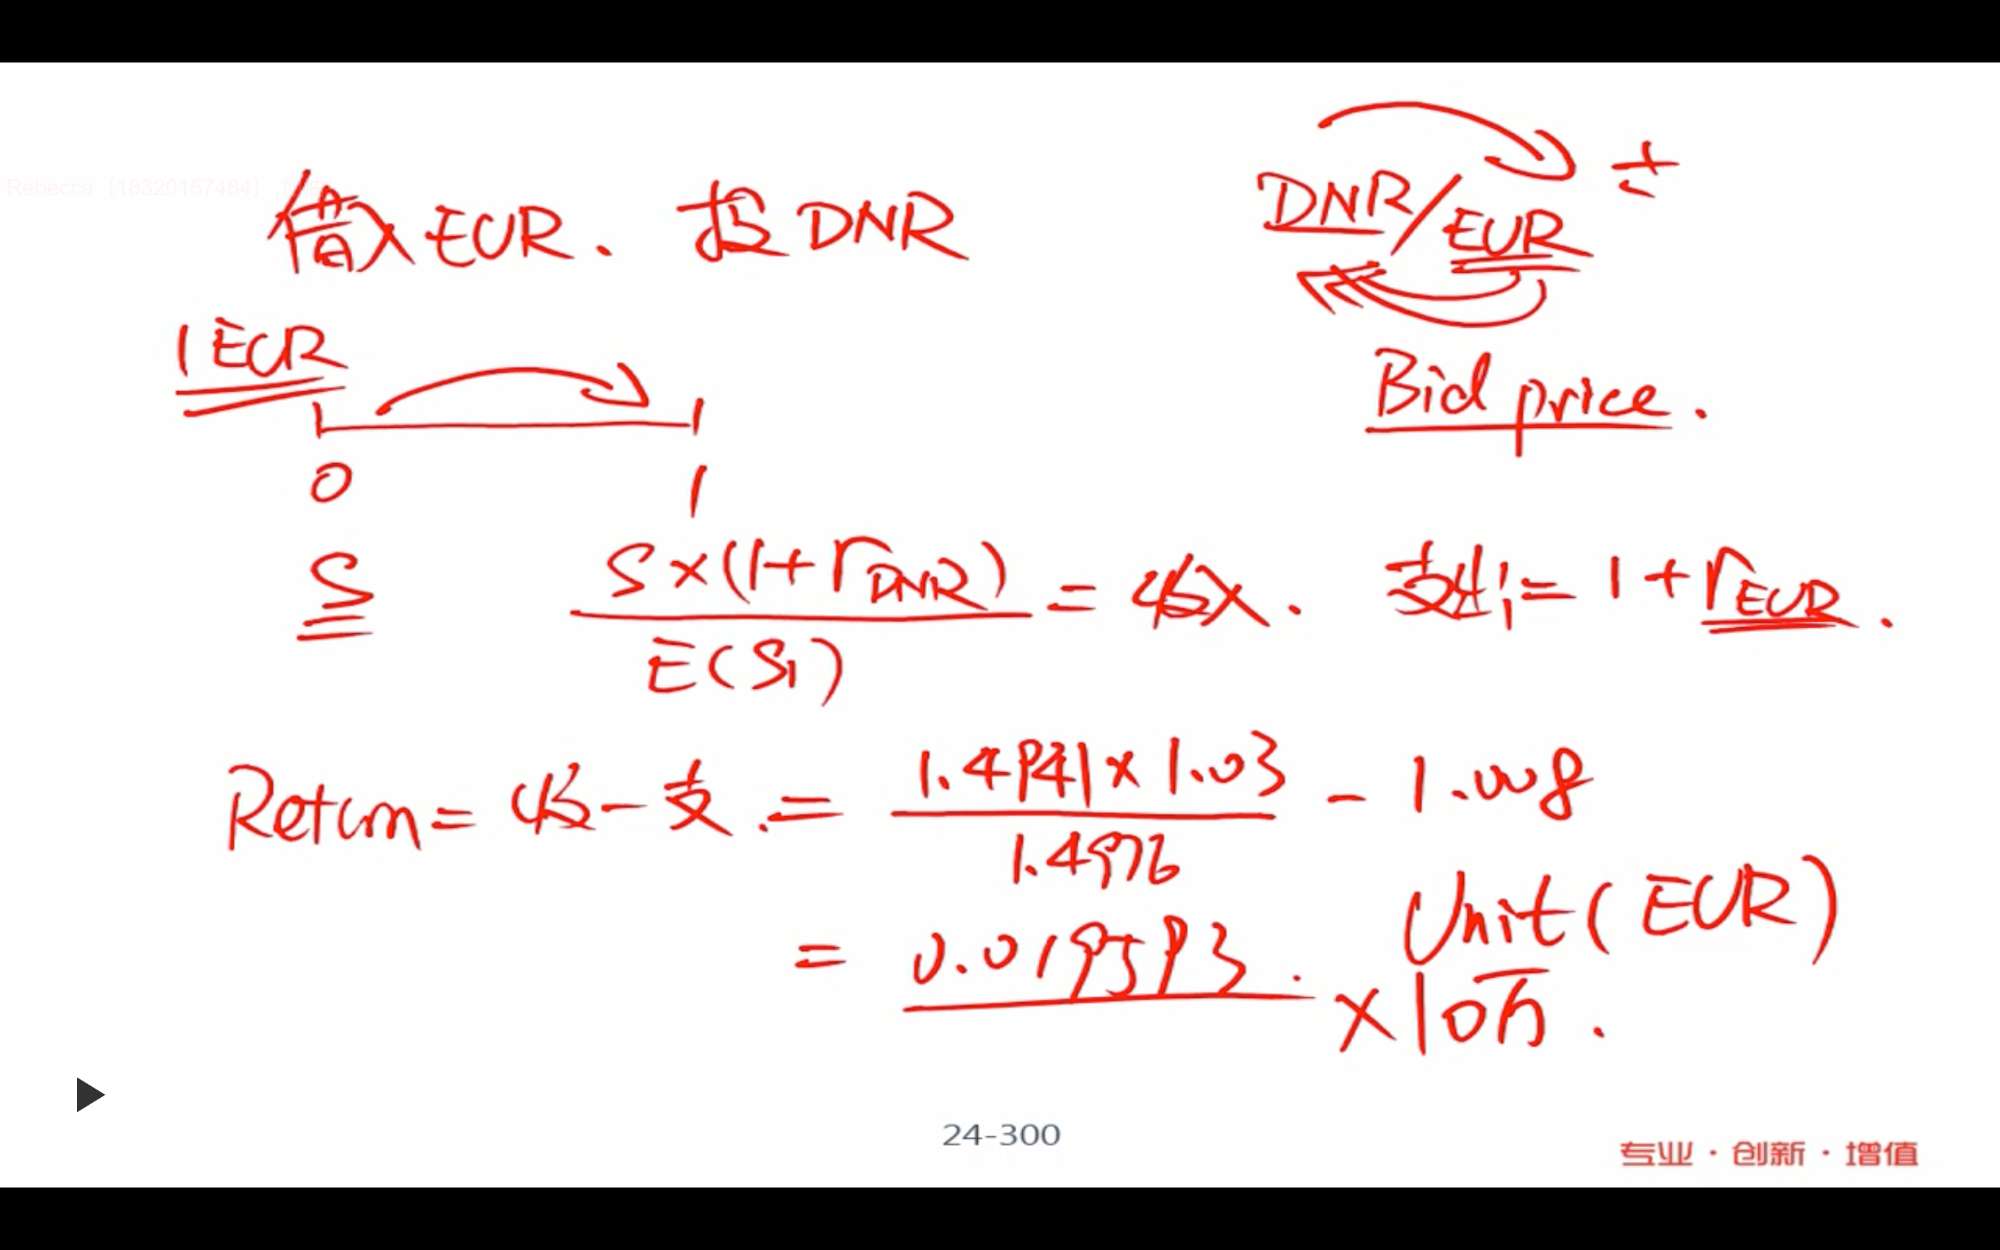 借入EUR. 投DNR
DNR/EUR ±
1 EUR
Bid price.
0 1
S
S×(1+rDNR) / E(S1) = 收入. 支出 = 1+rEUR.
Return = 收-支. = 1.4941×1.03 / 1.4976 - 1.008
= 0.019593. Unit(EUR)
×10万.
24-300
专业·创新·增值